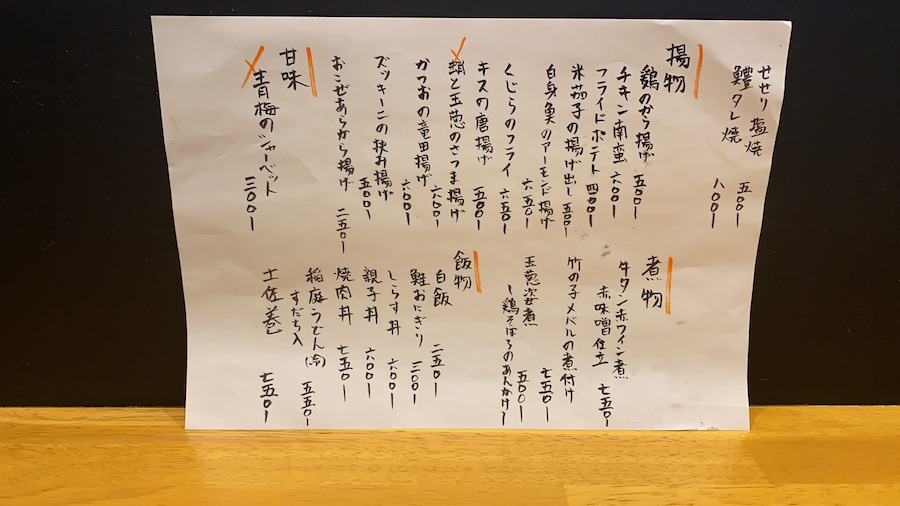 せせり塩焼 五〇〇ー
鱧タレ焼 八〇〇ー
揚物
鶏のから揚げ 五〇〇ー
チキン南蛮 六〇〇ー
フライドポテト 四〇〇ー
米茄子の揚げ出し 五〇〇ー
白身魚のアーモンド揚げ 六五〇ー
くじらのフライ 六五〇ー
キスの唐揚げ 五〇〇ー
蛸と玉葱のさつま揚げ 六〇〇ー
かつおの竜田揚げ 六〇〇ー
ズッキーニの挟み揚げ 五〇〇ー
おこぜあらから揚げ 二五〇ー
甘味
青梅のシャーベット 三〇〇ー
煮物
牛タン赤ワイン煮
赤味噌仕立 七五〇ー
竹の子メバルの煮付け 七五〇ー
玉葱淡煮 五〇〇ー
〜鶏そぼろのあんかけ〜
飯物
白飯 二五〇ー
鮭おにぎり 二〇〇ー
しらす丼 六〇〇ー
親子丼 六〇〇ー
焼肉丼 七五〇ー
稲庭うどん(冷)
すだち入 五五〇ー
土佐巻 七五〇ー